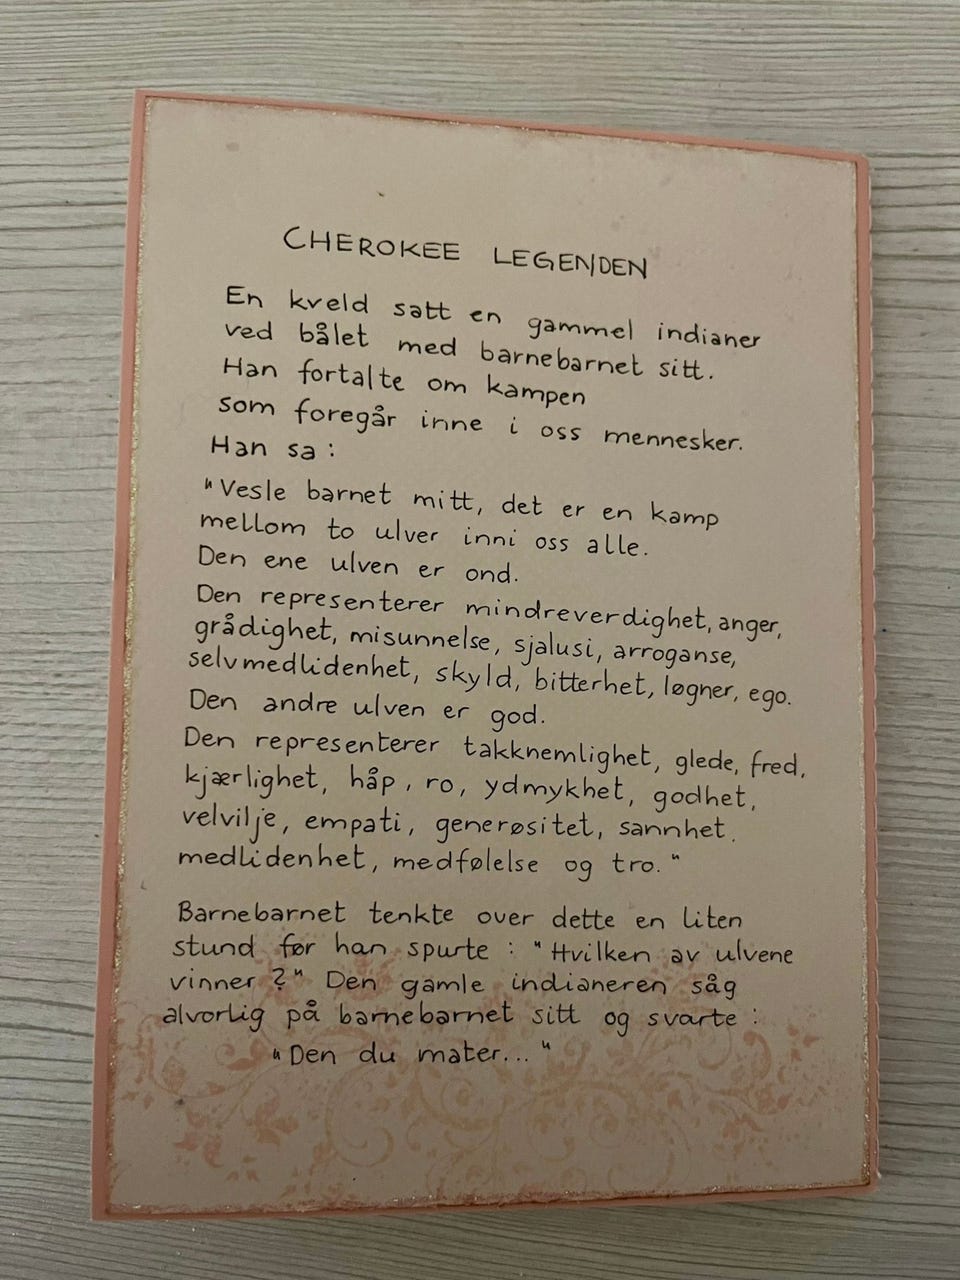 CHEROKEE LEGENDEN
En kveld satt en gammel indianer
ved bålet med barnebarnet sitt.
Han fortalte om kampen
som foregår inne i oss mennesker.
Han sa :
"Vesle barnet mitt, det er en kamp
mellom to ulver inni oss alle.
Den ene ulven er ond.
Den representerer mindreverdighet, anger,
grådighet, misunnelse, sjalusi, arroganse,
selvmedlidenhet, skyld, bitterhet, løgner, ego.
Den andre ulven er god.
Den representerer takknemlighet, glede, fred,
kjærlighet, håp, ro, ydmykhet, godhet,
velvilje, empati, generøsitet, sannhet.
medlidenhet, medfølelse og tro."
Barnebarnet tenkte over dette en liten
stund før han spurte : "Hvilken av ulvene
vinner ?" Den gamle indianeren såg
alvorlig på barnebarnet sitt og svarte :
"Den du mater..."